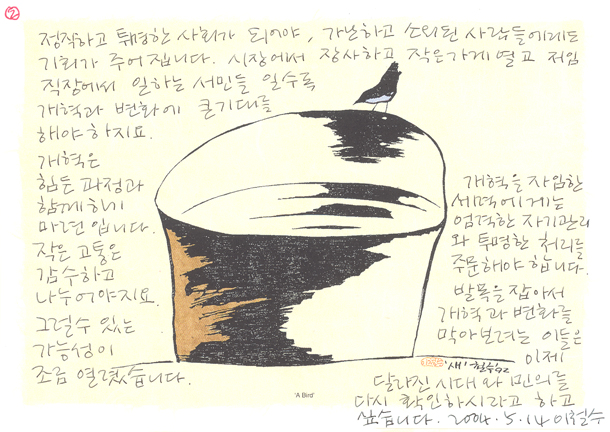 ②
정직하고 투명한 사회가 되어야, 가난하고 소외된 사람들에게도
기회가 주어집니다. 시장에서 장사하고 작은가게 열고 저임
직장에서 일하는 서민들 일수록
개혁과 변화에 큰기대를
해야하지요.
개혁은
힘든 과정과
함께하기
마련입니다.
작은 고통은
감수하고
나누어야지요.
그럴수 있는
가능성이
조금 열렸습니다.
개혁을 자임한
세력에게는
엄격한 자기관리
와 투명한 처리를
주문해야 합니다.
발목을 잡아서
개혁과 변화를
막아보려는 이들은
이제
달라진 시대와 민의를
다시 확인하시라고 하고
싶습니다. 2004. 5. 14 이철수
'새' 철수 92
'A Bird'